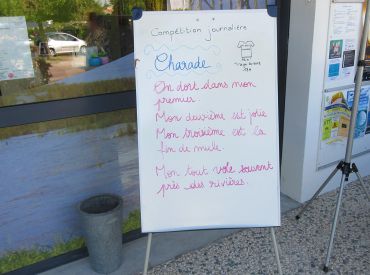 Compétition journalière
Charade
On dort dans mon
premier.
Mon deuxième est jolie
Mon troisième est la
fin de mule.
Mon tout vole souvent
près des rivières.